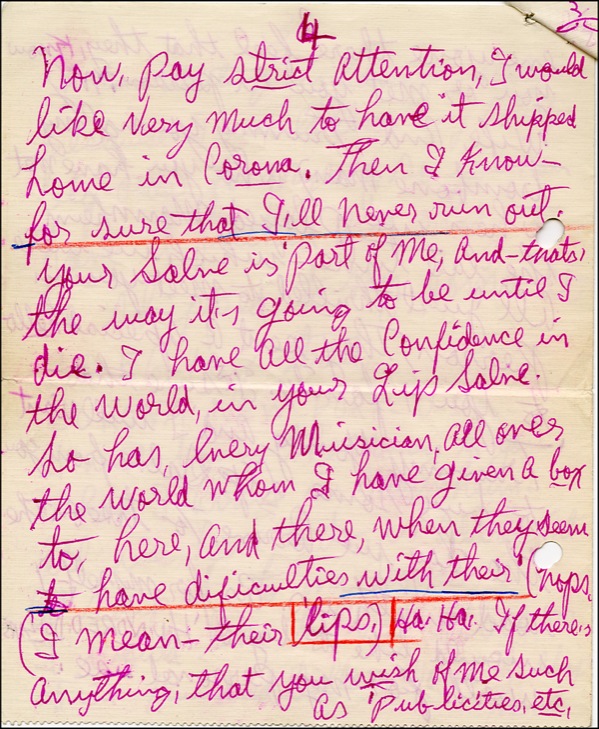 4
3/
Now, pay strict attention, I would
like very much to have it shipped
home in Corona. Then I know–
for sure that I,ll never run out.
your Salve is 'part of me, and–thats,
the way it,s going to be until I
die. I have all the Confidence in
the world, in your Lip Salve.
So has, Every Musician, all over
the world whom I have given a box
to, here, and there, when they seem
to have dificulties with their (chops.
(I mean–their 'lips,) Ha. Ha. If there,s
anything, that you wish of me such
as 'Publicities, etc,